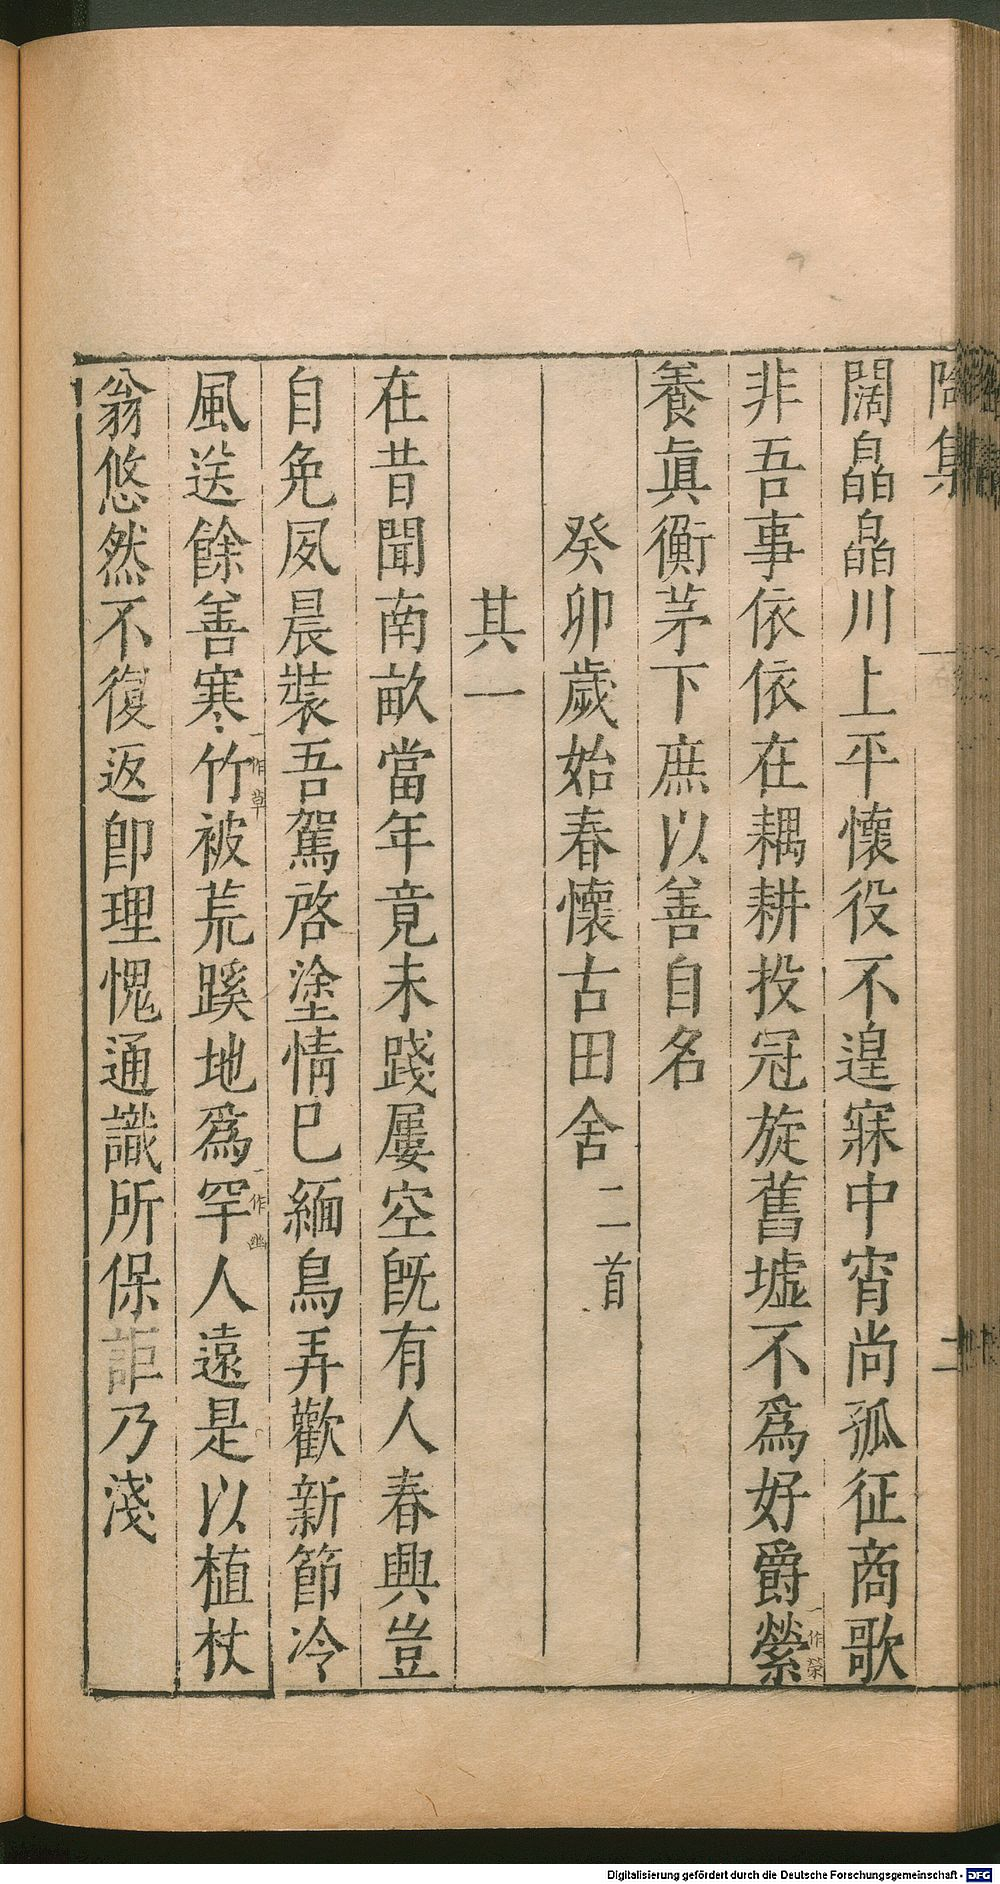 陶集
二
闊皛皛川上平懷役不遑寐中宵尚孤征商歌
非吾事依依在耦耕投冠旋舊墟不為好爵縈一作榮
養眞衡茅下庶以善自名
癸卯歲始春懷古田舍二首
其一
在昔聞南畝當年竟未踐屢空旣有人春興豈
自免夙晨裝吾駕啓塗情已緬鳥弄歡新節冷
風送餘善寒竹一作草被荒蹊地爲罕一作幽人遠是以植杖
翁悠然不復返卽理愧通識所保詎乃淺
Digitalisierung gefördert durch die Deutsche Forschungsgemeinschaft - DFG